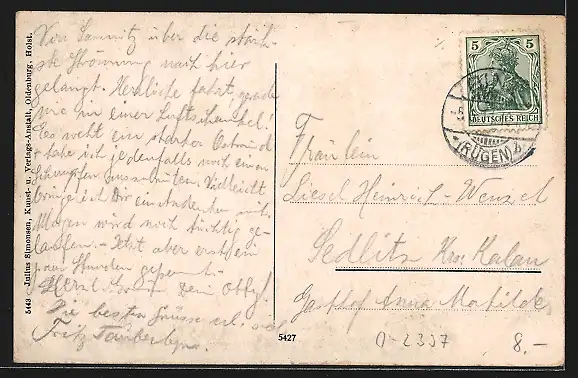 Von Sassnitz über die stärk-
ste Strömung nach hier
gelangt. Herrliche Fahrt, gerade
wie in einer Luftschaukel!
Es weht ein starker Ostwind
habe ich jedenfalls noch einen
Schnupfen auszubrüten. Vielleicht
bringe ich Dir ein Andenken mit.
Magen wird noch tüchtig ge-
laufen. - Jetzt aber erst ein
paar Stunden gepennt.-
Herzl. Dein
Die besten Grüsse
Fritz
5443 Julius Simonsen, Kunst- u. Verlags-Anstalt, Oldenburg, Holst.
5427
5 5
DEUTSCHES REICH
(RÜGEN)
Fräulein
Liesel Heinrich-Wenzel
Sedlitz Krs. Kalau
Gasthof Anna Mathilde
0-2337
8.-